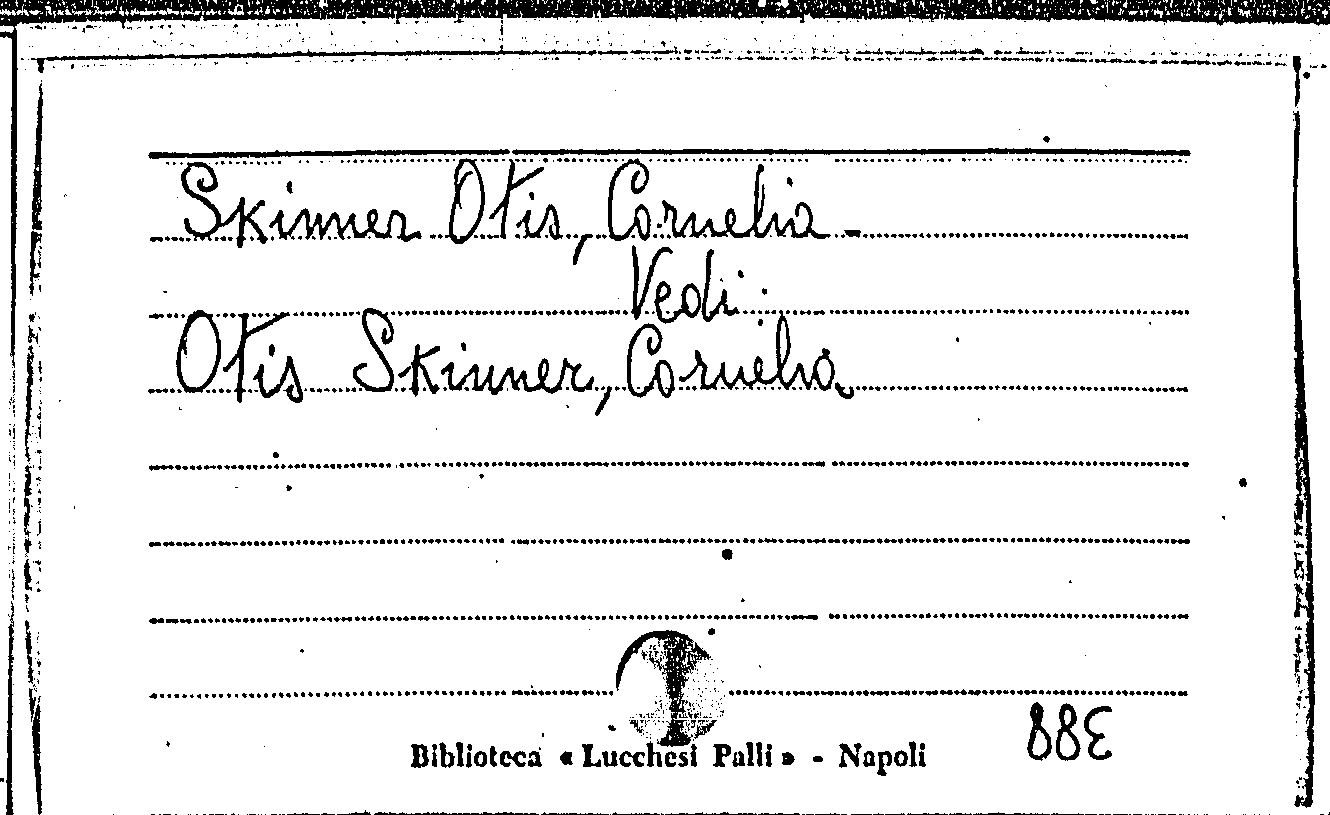 Skinner Otis, Cornelia -
Vedi:
Otis Skinner, Cornelia
Biblioteca « Lucchesi Palli » - Napoli